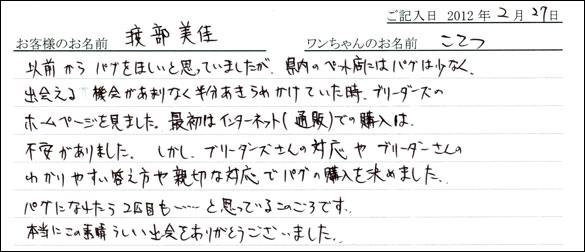 ご記入日 2012 年 2 月 27 日
お客様のお名前 渡部美佳 ワンちゃんのお名前 こてつ
以前からパグをほしいと思っていましたが、県内のペット店にはパグは少なく、
出会える機会があまりなく半分あきらめかけていた時、ブリーダーズの
ホームページを見ました。最初はインターネット(通販)での購入は、
不安がありました。しかし、ブリーダーズさんの対応やブリーダーさんの
わかりやすい答え方や親切な対応でパグの購入を決めました。
パグになれたら2匹目も……と思っているこのごろです。
本当にこの素晴らしい出会をありがとうございました。